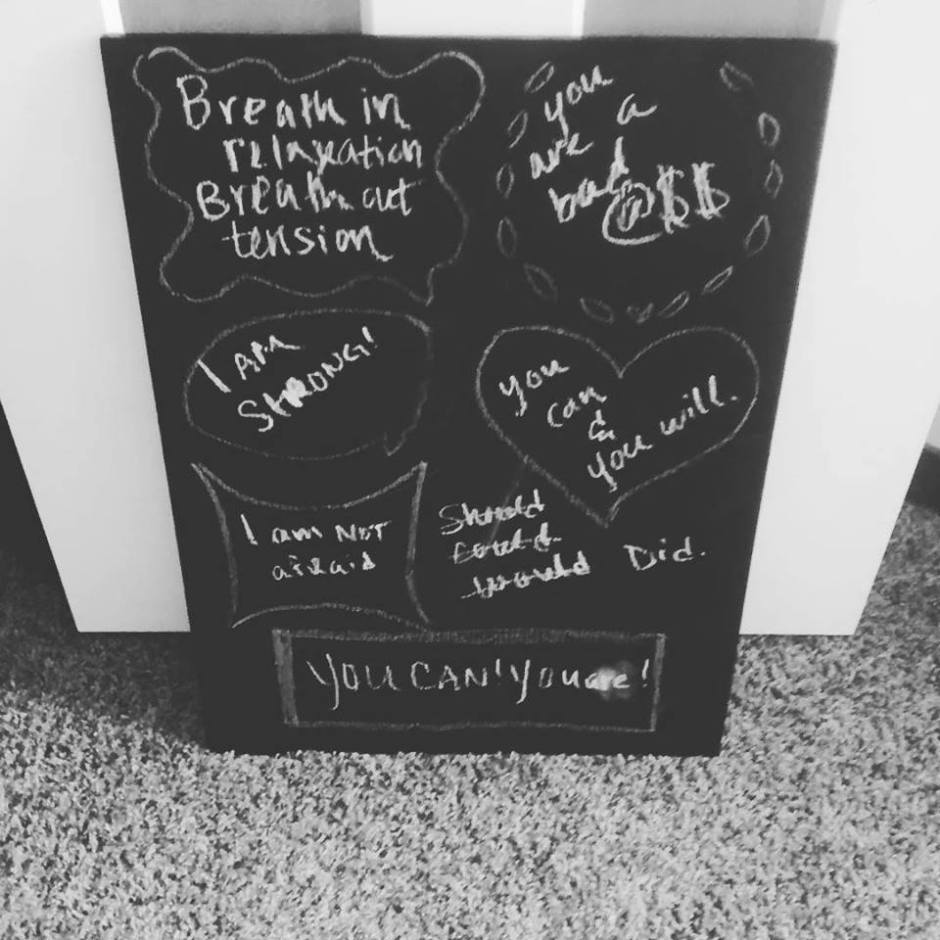 Breath in
relaxation
Breath out
tension
you
are a
bad
@$$
I AM
STRONG!
you
can
&
you will.
I am NOT
afraid
Should
Could
Would Did.
YOU CAN! YOU are!